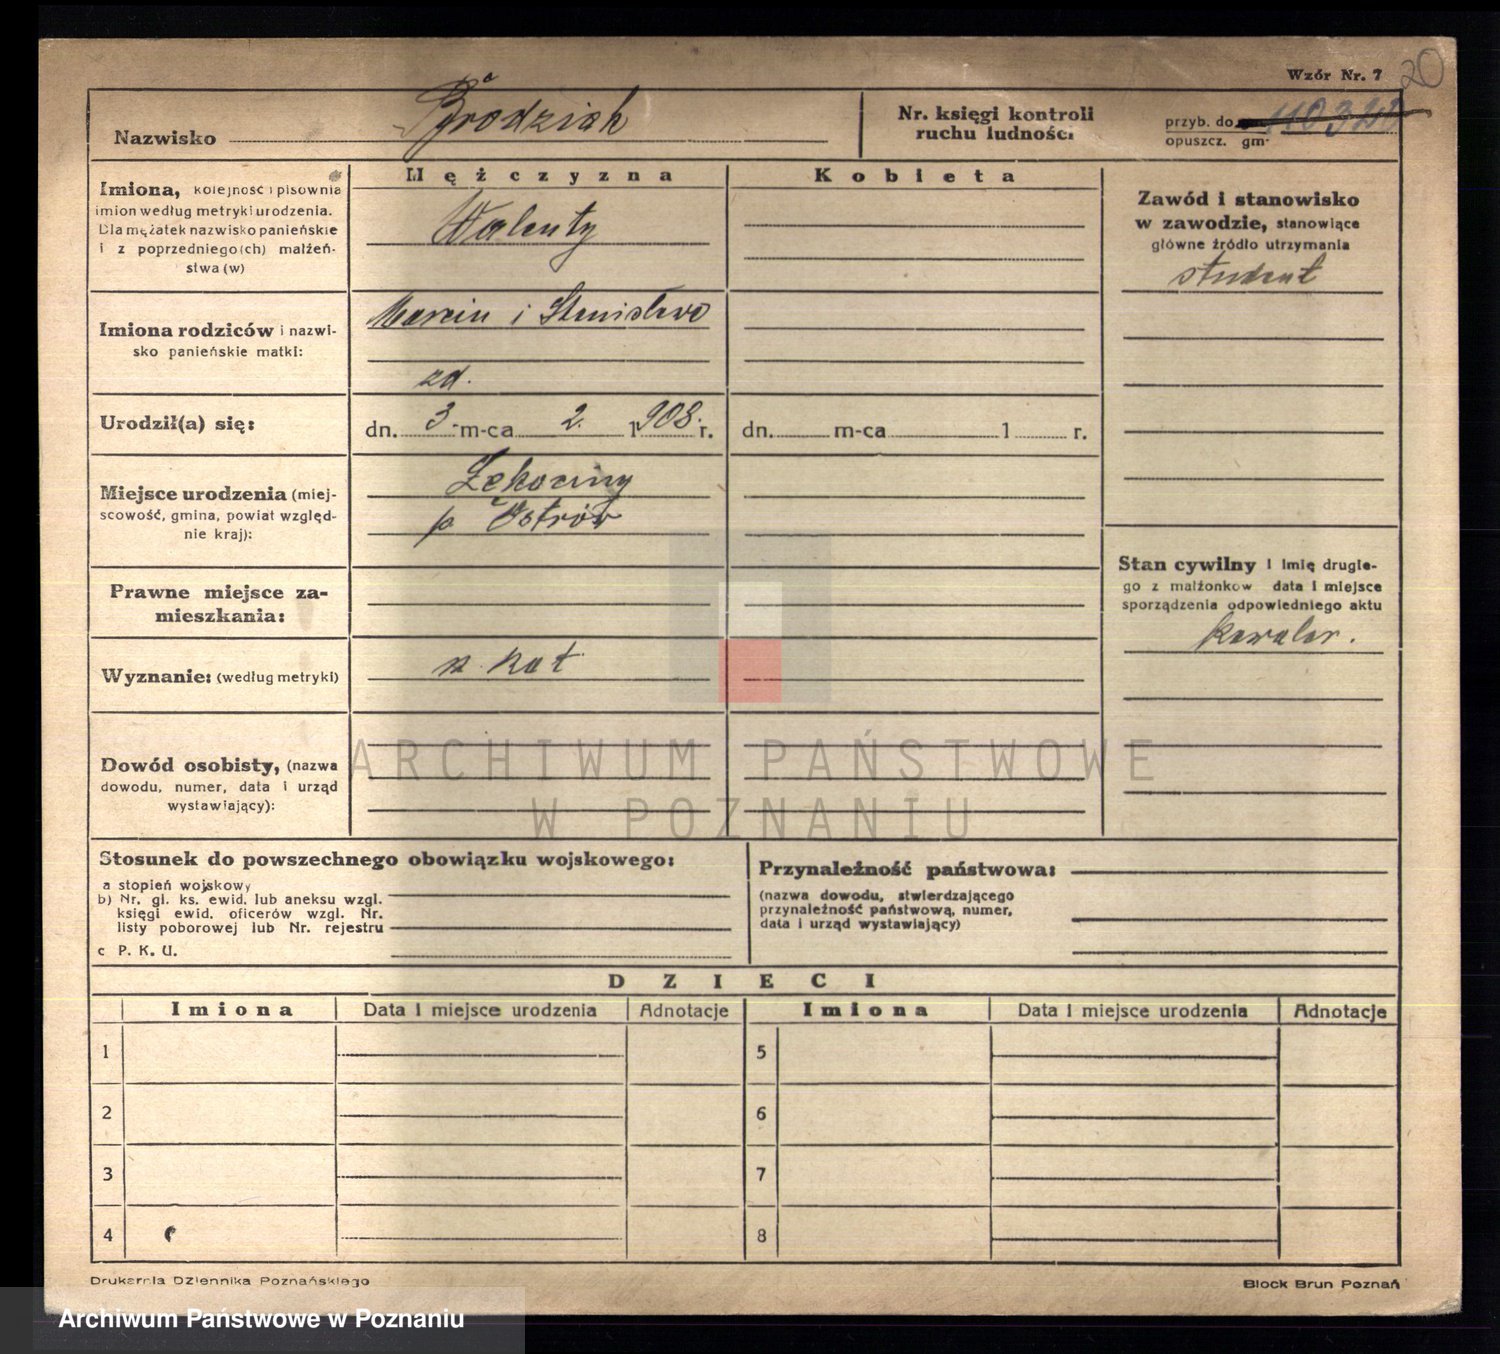 Wzór Nr. 7
20
Nazwisko Brodziak
Nr. księgi kontroli
ruchu ludności
przyb. do
opuszcz. gm.
Imiona, kolejność i pisownia
imion według metryki urodzenia.
Dla mężatek nazwisko panieńskie
i z poprzedniego(ch) małżeń-
stwa (w)
Mężczyzna
Walenty
Kobieta
Zawód i stanowisko
w zawodzie, stanowiące
główne źródło utrzymania
student
Imiona rodziców i nazwi-
sko panieńskie matki:
Marcin i Stanisława
zd.
Urodził(a) się:
dn. 3. m-ca 2. 1908. r.
dn. m-ca 1 r.
Miejsce urodzenia (miej-
scowość, gmina, powiat względ-
nie kraj):
p Ostrów
Stan cywilny i imię drugie-
go z małżonków data i miejsce
sporządzenia odpowiedniego aktu
kawaler.
Prawne miejsce za-
mieszkania:
Wyznanie: (według metryki)
rz. kat.
Dowód osobisty, (nazwa
dowodu, numer, data i urząd
wystawiający):
ARCHIWUM PAŃSTWOWE
W POZNANIU
Stosunek do powszechnego obowiązku wojskowego:
a stopień wojskowy
b) Nr. gł. ks. ewid. lub aneksu wzgl.
księgi ewid. oficerów wzgl. Nr.
listy poborowej lub Nr. rejestru
c P. K. U.
Przynależność państwowa:
(nazwa dowodu, stwierdzającego
przynależność państwową, numer,
data i urząd wystawiający)
DZIECI
Imiona Data i miejsce urodzenia Adnotacje Imiona Data i miejsce urodzenia Adnotacje
1 5
2 6
3 7
4 8
Drukarnia Dziennika Poznańskiego
Block Brun Poznań
Archiwum Państwowe w Poznaniu